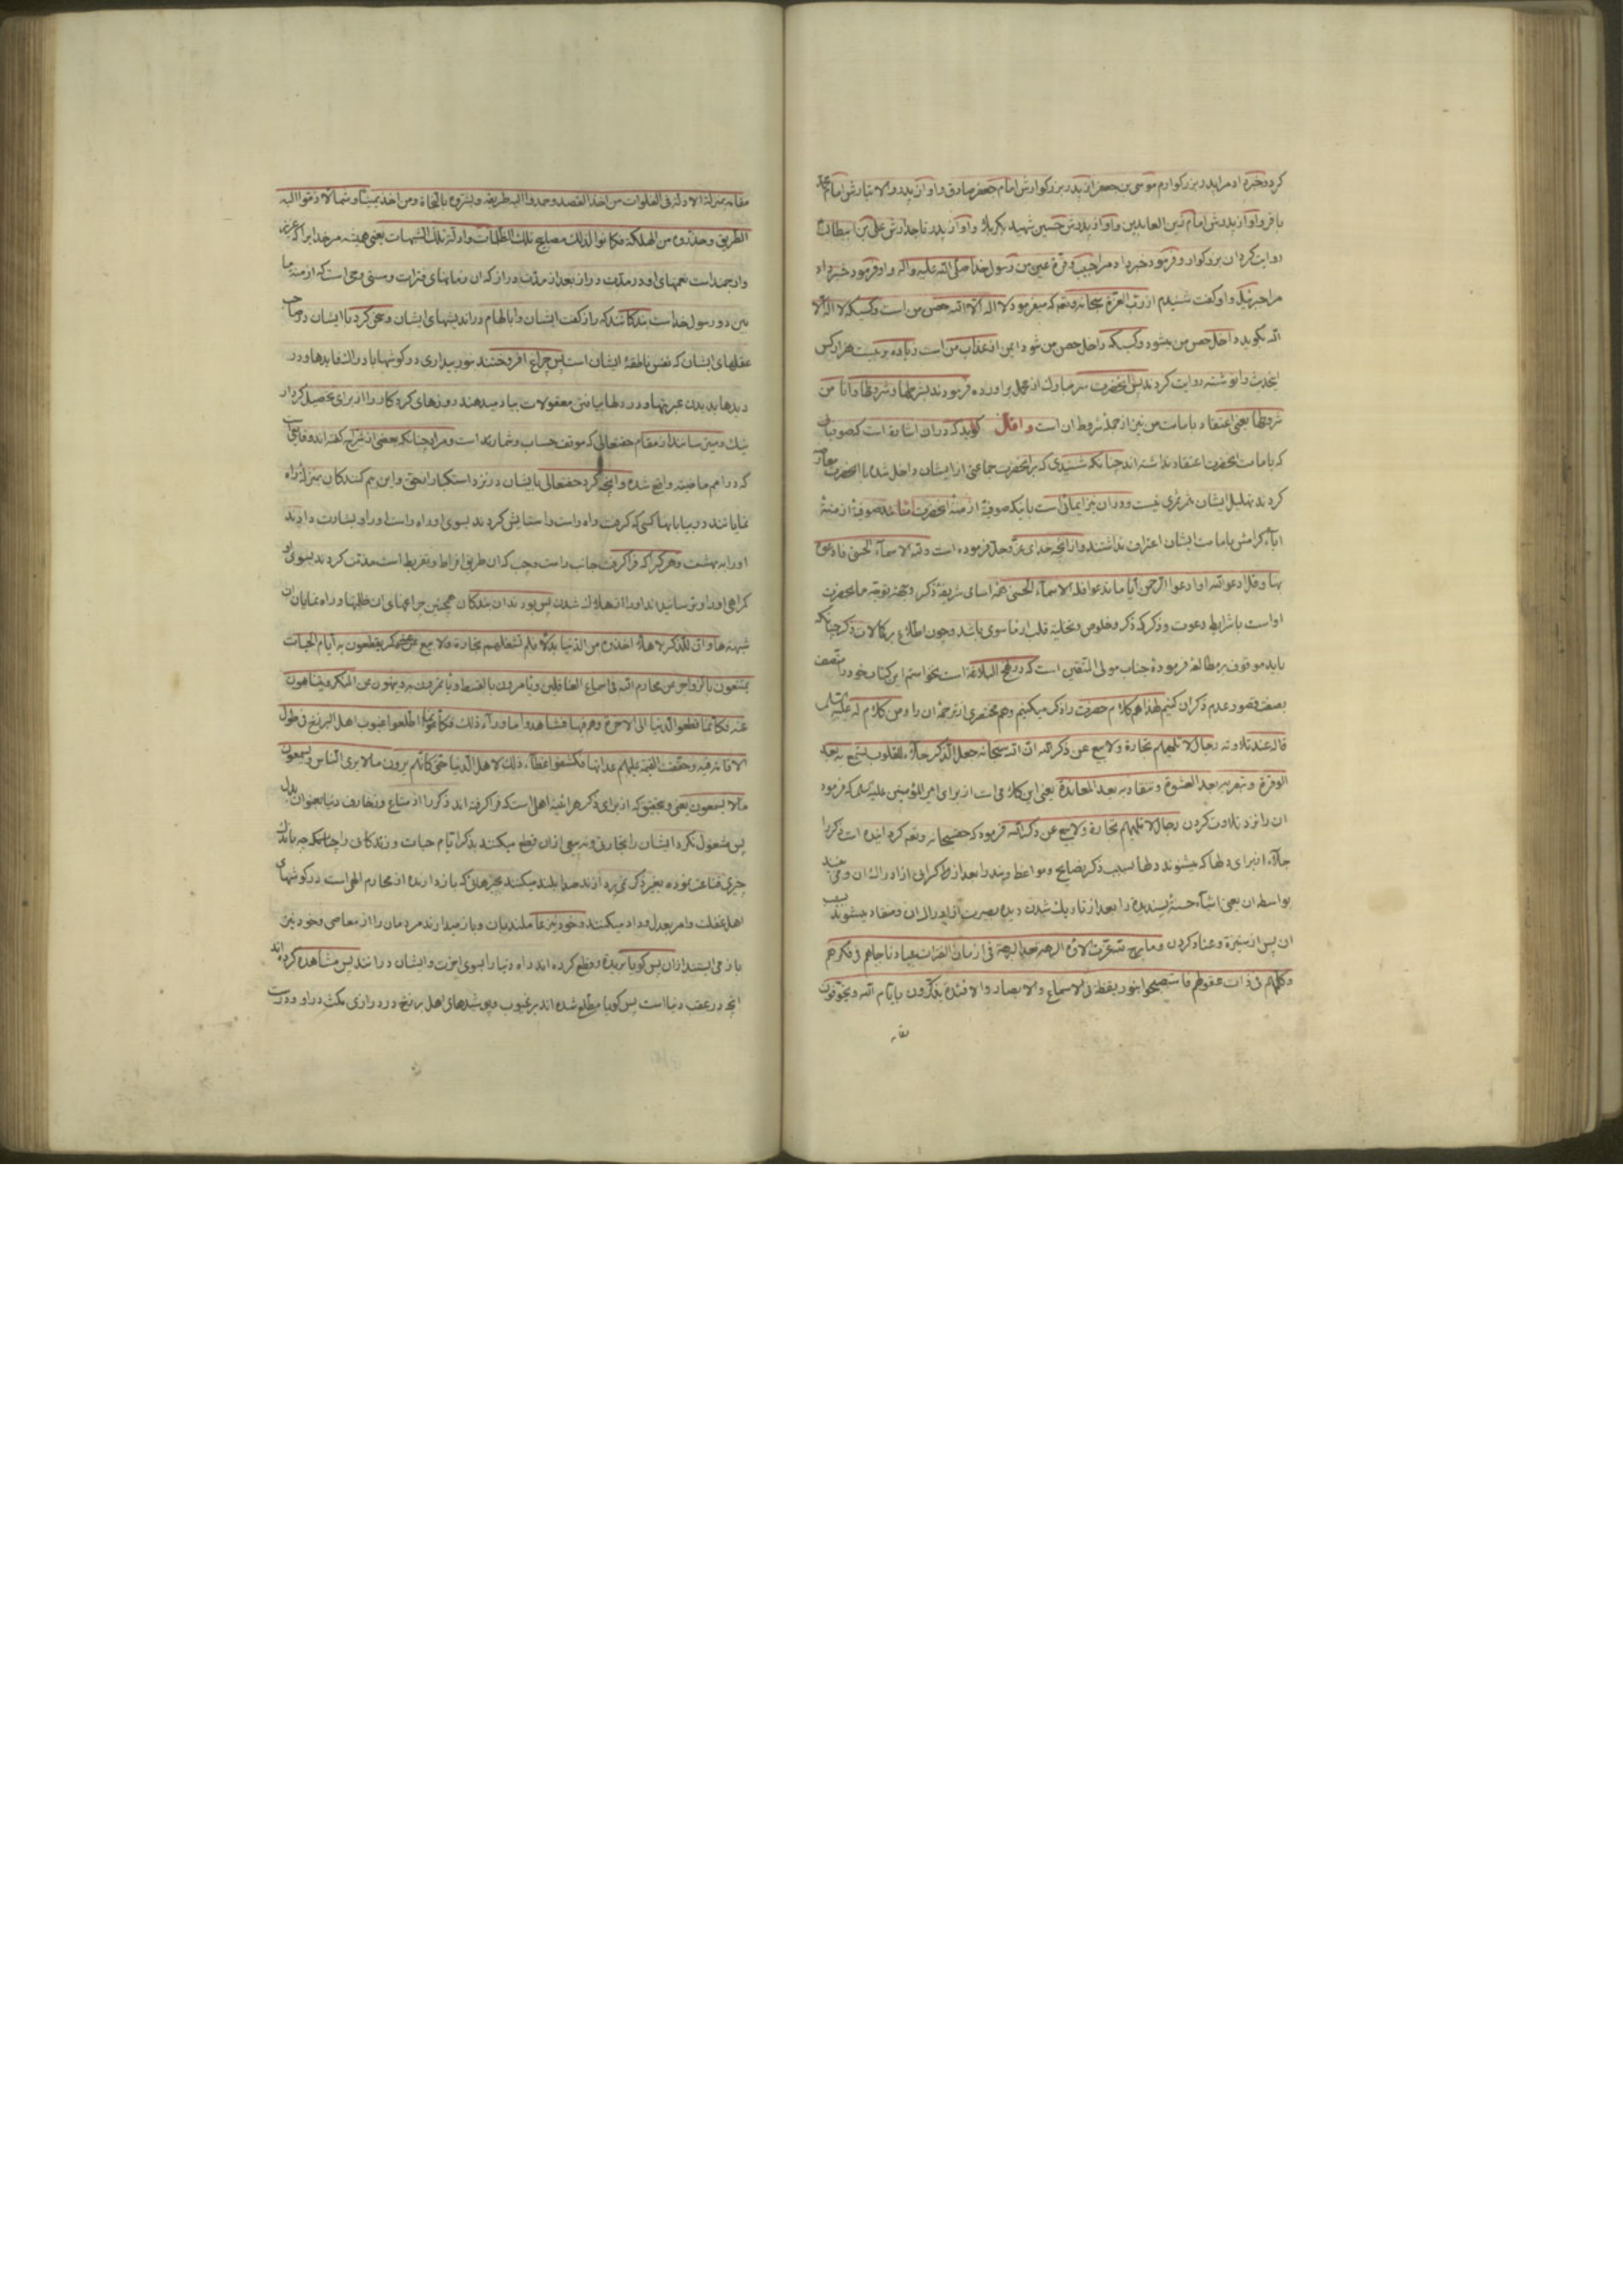 کرد و خبر داد مرا پدر بزرگوارم موسی بن جعفر از پدر بزرگوارش امام جعفر صادق و او از پدر والا تبارش امام محمد
باقر و او از پدرش امام زین العابدین و او از پدرش حسین شهید بکربلا و او از پدر تاجدارش علی بن ابیطالب
روایت کرد ان بزرکوار و فرمود خبر داد مرا حبیب و قرة عین من رسول خدا صلی الله علیه واله و او فرمود خبر داد
مرا جبرئیل و او کفت شنیدم از رب العزة سبحانه وتعه که میفرمود لا اله الا الله حصن من است وکسیکه لا اله الا
الله بکوید داخل حصن من میشود وکسیکه داخل حصن من شود ایمن از عذاب من است زیاده بر بیست هزار کس
اینحدیث را نوشته روایت کردند پس انحضرت سر مبارک از محمل براورده فرمودند بشرطها وشروطها وانا من
شروطها یعنی اعتقاد بامامت من نیز از جمله شروط ان است و اقال کوید که دران اشاره است که صوفیان
که بامامت انحضرت اعتقاد نداشته اند چنانکه شنیدی که بر انحضرت جماعتی از ایشان داخل شده با انحضرت معارضه
کردند تهلیل ایشان را ثمری نیست و دران نیز ایمائی است باینکه صوفیهٔ ازمنهٔ انحضرت مانند صوفیهٔ ازمنهٔ
اباء کرامش بامامت ایشان اعتراف نداشتند و از انچه خدای عز وجل فرموده است ولله الاسماء الحسنی فادعوه
بها وقل ادعوا الله او ادعوا الرحمن ایا ما تدعوا فله الاسماء الحسنی اسامی شریفهٔ ذکر
او است با شرایط دعوت و ذکر که ذکر و خلوص و تخلیه قلب از ما سوی باشد و چون اطلاع بر کالات ذکر چنانکه
باید موقوف بر مطالعهٔ فرمودهٔ جناب مولی المتقین است که در نهج البلاغة است نخواستم این کتاب خود را متصف
بصفت قصور عدم ذکر ان کنیم لهذا هم کلام حضرت را ذکر میکنیم وهم مختصری از ترجمهٔ ان را ومن کلام له علیه السلام
قاله عند تلاوته رجال لا تلهیهم تجارة ولا بیع عن ذکر الله ان الله سبحانه جعل الذکر جلاء للقلوب تسمع به بعد
الوقرة وتبصر به بعد العشوة وتنقاد به بعد المعاندة یعنی این کلامی است از برای امیر المؤمنین علیه السلام که فرمود
ان را نزد تلاوت کردن رجال لا تلهیهم تجارة ولا بیع عن ذکر الله فرمود که حقسبحانه وتعه کردانیده است ذکر را
جلاء از برای دلها که میشنوند دلها بسبب ذکر نصایح و مواعظ و پند را بعد از کرانی از ادراک ان ومی بینند
بواسطه ان یعنی اشیاء حسنهٔ پسندیده را بعد از تاریک شدن دیده بصیرت از ادراک ان ومنقاد میشوند بسبب
ان پس از ستیزة وعناد کردن وما برح لله عزت الائه فی البرهة بعد البرهة فی ازمان الفترات عباد ناجاهم فی فکرهم
وکلمهم فی ذات عقولهم فاستصبحوا بنور یقظة فی الاسماع والابصار والافئدة یذکرون بایام الله ویخوفون
مقامه
مقامه بمنزلة الادلة فی الفلوات من اخذ القصد حمدوا الیه طریقه وبشروه بالنجاة ومن اخذ یمینا وشمالا ذموا الیه
الطریق وحذروه من الهلکة فکانوا کذلک مصابیح تلک الظلمات وادلة تلک الشبهات یعنی همیشه مر خدایرا که عزیز
وارجمند است نعمتهای او در مدت دراز بعد از مدت دراز که ان زمانهای فترات وسستی وحی است که ازمنه ما
بین دو رسول خداست بندکانند که راز کفت ایشان را بالهام در اندیشهای ایشان وسخن کرد با ایشان در صاحب
عقلهای ایشان که نفس ناطقهٔ ایشان است پس چراغ افروختند بنور بیداری در کوشها بادراک فایدها ودر
دیدها بدیدن عبرتها ودر دلها بیافتن معقولات بیاد میدهند روزهای کردکار را از برای تحصیل کردار
نیک ومیترسانند از مقام حقتعالی که موقف حساب وشمار بند است ومراد چنانکه بعضی از شراح کفته اند وقایعی است
که در امم ماضیه واقع شده وانچه کرد حقتعالی بایشان در نزد استکبار از حق واین بیم کنندکان بمنزلهٔ راه
نمایانند در بیابانها کسی که کرفت راه راست را ستایش کردند بسوی او راه راست او را وبشارت دادند
او را به بهشت وهر کرا که فراکرفت جانب راست وچپ که ان طریق افراط وتفریط است مذمت کردند بسوی او
کمراهی او را وترسانیدند او را از هلاک شدن پس بودند ان بندکان همچنین چراغهای ان ظلمتها وراه نمایان ان
شبهتها وان للذکر لاهلا اخذوه من الدنیا بدلا فلم تشغلهم تجارة ولا بیع عنه یقطعون به ایام الحیات
ویهتفون بالزواجر عن محارم الله فی اسماع الغافلین ویامرون بالقسط ویاتمرون به وینهون عن المنکر ویتناهون
عنه فکانما قطعوا الدنیا الی الاخرة وهم فیها فشاهدوا ما وراء ذلک فکانما اطلعوا غیوب اهل البرزخ فی طول
الاقامة فیه وحققت القیمة علیهم عداتها فکشفوا غطاء ذلک لاهل الدنیا حتی کانهم یرون ما لا یری الناس ویسمعون
ما لا یسمعون یعنی وبتحقیق که از برای ذکر هراینه اهلی است که فراکرفته اند ذکر را از متاع وزخارف دنیا بعنوان بدل
پس مشغول نکرد ایشان را تجارتی ونه بیعی ازان قطع میکنند بذکر ایام حیات وزندکانی را
چیزی قناعت نموده بغیر ذکر نمی پردازند وصدا بلند میکنند بزجرهائی که بازدارنده از محارم الهی است در کوشهای
اهل غفلت وامر بعدل وداد میکنند وخود نیز عاملند بان وباز میدارند مردمان را از معاصی وخود نیز
باز می ایستند ازان پس کویا بریده وقطع کرده اند راه دنیا را بسوی اخرت وایشان در انند پس مشاهده کرده اند
انچه در عقب دنیا است پس کویا مطلع شده اند بر غیوب وپوشیدهای اهل برزخ در درازی مکث در او